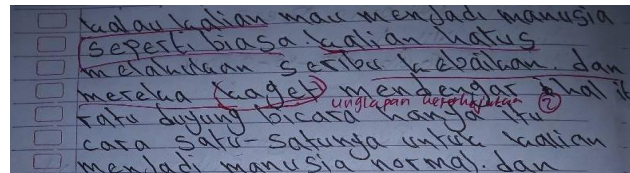 kalau kalian mau menjadi manusia
seperti biasa. kalian harus
melakukan seribu kebaikan. dan
mereka (kaget) mendengar ihal it
ungkapan keterkejutan ②
ratu duyung bicara hanya itu
cara satu-satunya untuk kalian
menjadi manusia normal. dan